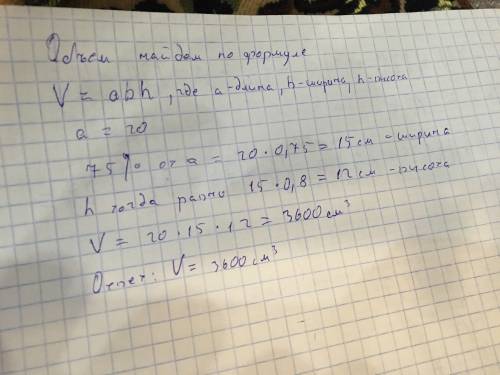 Объем найдем по формуле
V = abh, где a-длина, b-ширина, h-высота
a = 20
75% от a = 20 · 0,75 = 15 см - ширина
h тогда равно 15 · 0,8 = 12 см - высота
V = 20 · 15 · 12 = 3600 см³
Ответ: V = 3600 см³